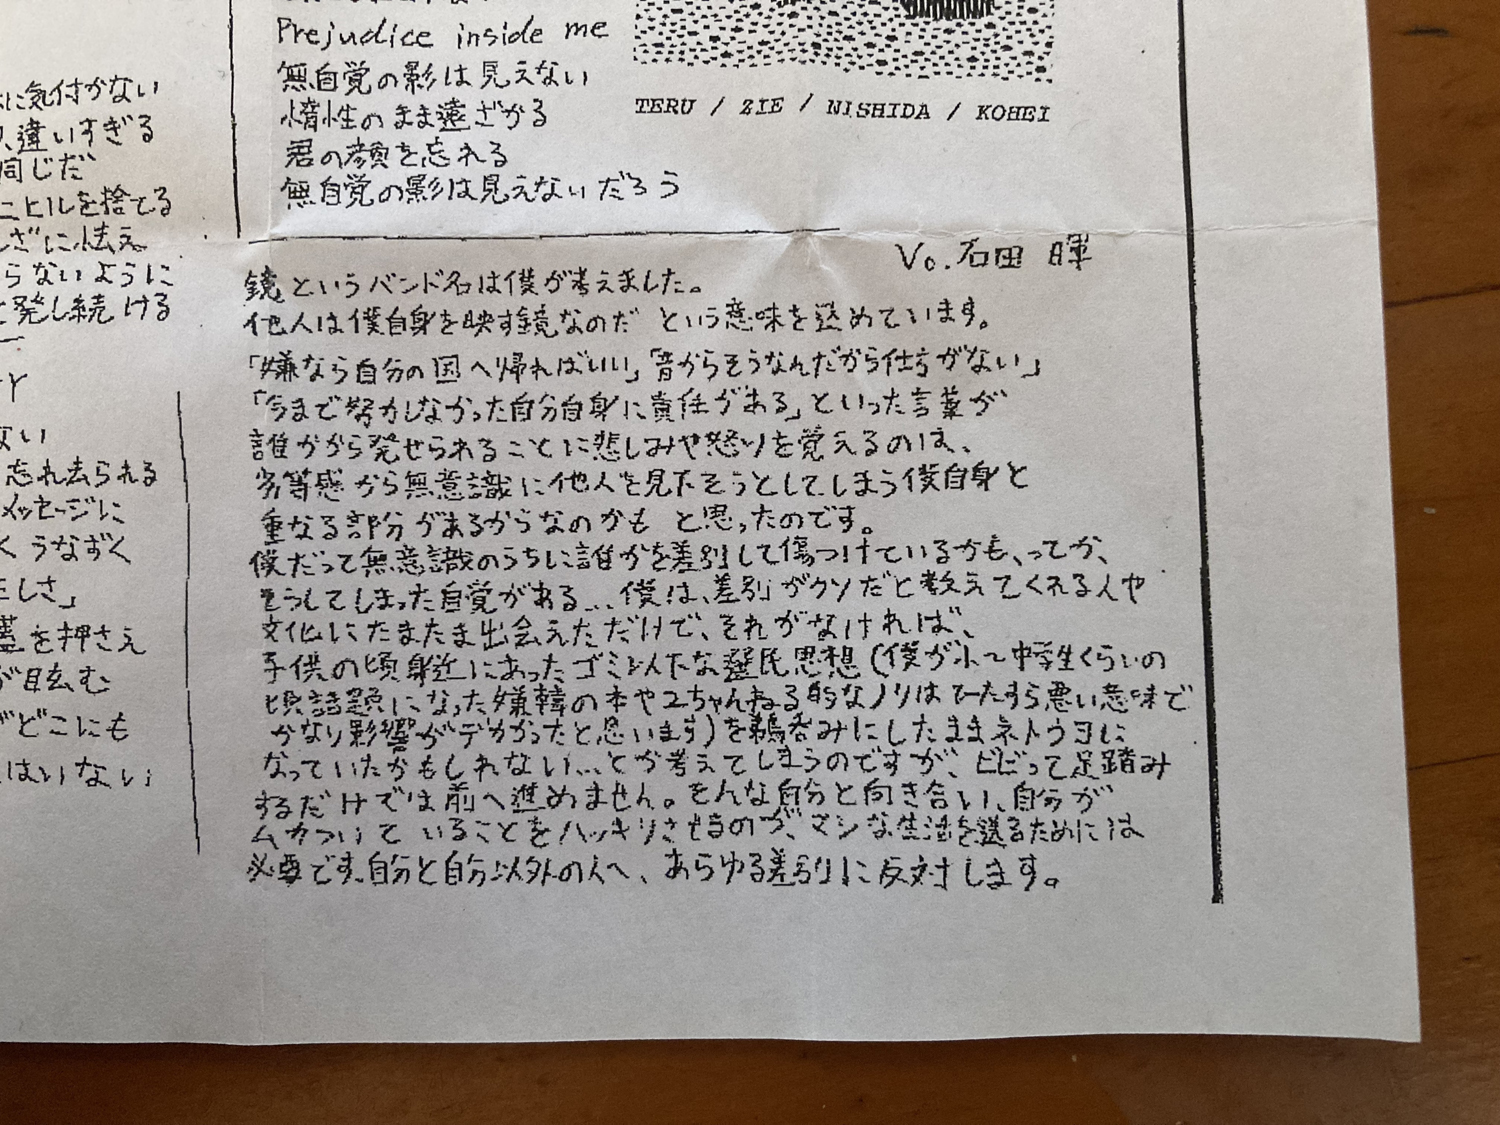 に気付かない
違いすぎる
同じだ
ニヒルを捨てる
ざに怯え
らないように
と発し続ける
ない
忘れ去られる
メッセージに
くうなずく
正しさ」
蓋を押さえ
が眩む
どこにも
はいない
Prejudice inside me
無自覚の影は見えない
惰性のまま遠ざかる
君の顔を忘れる
無自覚の影は見えないだろう
TERU / ZIE / NISHIDA / KOHEI
Vo. 石田 暉
鏡というバンド名は僕が考えました。
他人は僕自身を映す鏡なのだ という意味を込めています。
「嫌なら自分の国へ帰ればいい」「昔からそうなんだから仕方がない」
「今まで努力しなかった自分自身に責任がある」といった言葉が
誰かから発せられることに悲しみや怒りを覚えるのは、
劣等感から無意識に他人を見下そうとしてしまう僕自身と
重なる部分があるからなのかも と思ったのです。
僕だって無意識のうちに誰かを差別して傷つけているかも、ってか、
そうしてしまった自覚がある...僕は、差別がクソだと教えてくれる人や
文化にたまたま出会えただけで、それがなければ、
子供の頃身近にあったゴミみたいな選民思想(僕が小〜中学生くらいの
頃話題になった嫌韓の本や2ちゃんねる的なノリはひたすら悪い意味で
かなり影響がデカかったと思います)を鵜呑みにしたままネトウヨに
なっていたかもしれない...とか考えてしまうのですが、ビビって足踏み
するだけでは前へ進めません。そんな自分と向き合い、自分が
ムカついていることをハッキリさせるのが、マシな生活を送るためには
必要です。自分と自分以外の人へ、あらゆる差別に反対します。